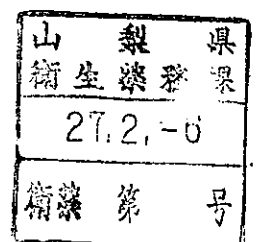 山梨県
衛生薬務課
27.2.-6
衛薬第号